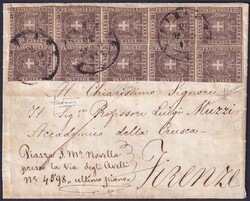 Al Chiarissimo Signore
Il Sigr Professore Luigi Muzzi
Accademico della Crusca
Piazza S. Ma Novella
presso la Via degli Avelli
No 4598. ultimo piano
Firenze